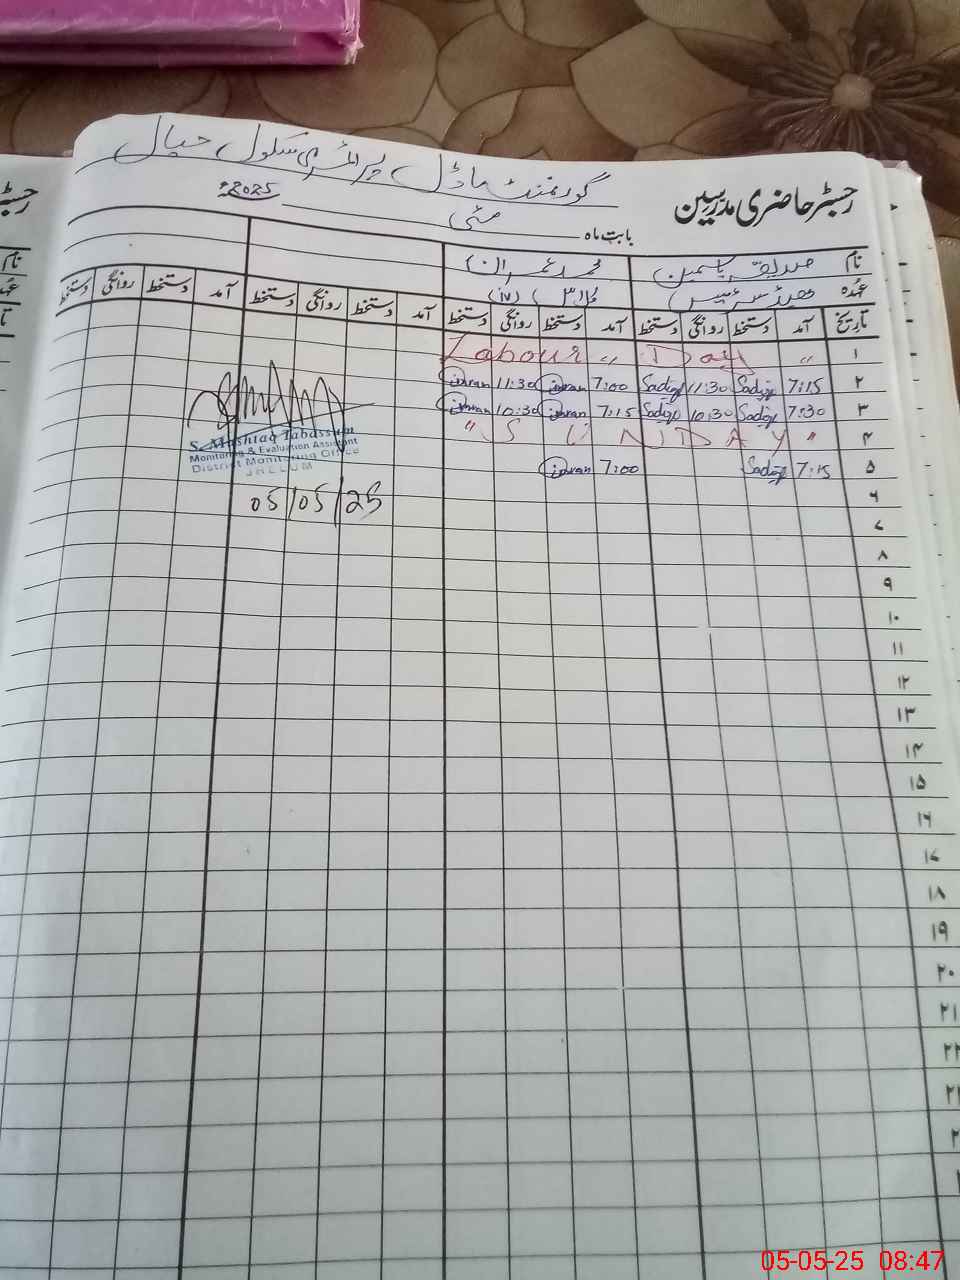 گورنمنٹ ماڈل پرائمری سکول جپال
رجسٹر حاضری مدرسین
بابت ماہ مئی 2025ء
نام صدیقہ یاسمین محمد عمران
عہدہ ہیڈ مسٹریس کلاس (iv)
تاریخ آمد دستخط روانگی دستخط آمد دستخط روانگی دستخط آمد دستخط روانگی دستخط آمد دستخط روانگی دستخط
۱ Labour " Day "
۲ 7:15 Sadiqa 11:30 Sadiqa 7:00 imran 11:30 imran
۳ 7:30 Sadiqa 10:30 Sadiqa 7:15 imran 10:30 imran
۴ " SUNDAY "
۵ 7:15 Sadiqa 7:00 imran
S. Mushtaq Tabassum
Monitoring & Evaluation Assistant
District Monitoring Office
JHELUM
05/05/25
۶
۷
۸
۹
۱۰
۱۱
۱۲
۱۳
۱۴
۱۵
۱۶
۱۷
۱۸
۱۹
۲۰
۲۱
۲۲
رجسٹر
نام
05-05-25 08:47